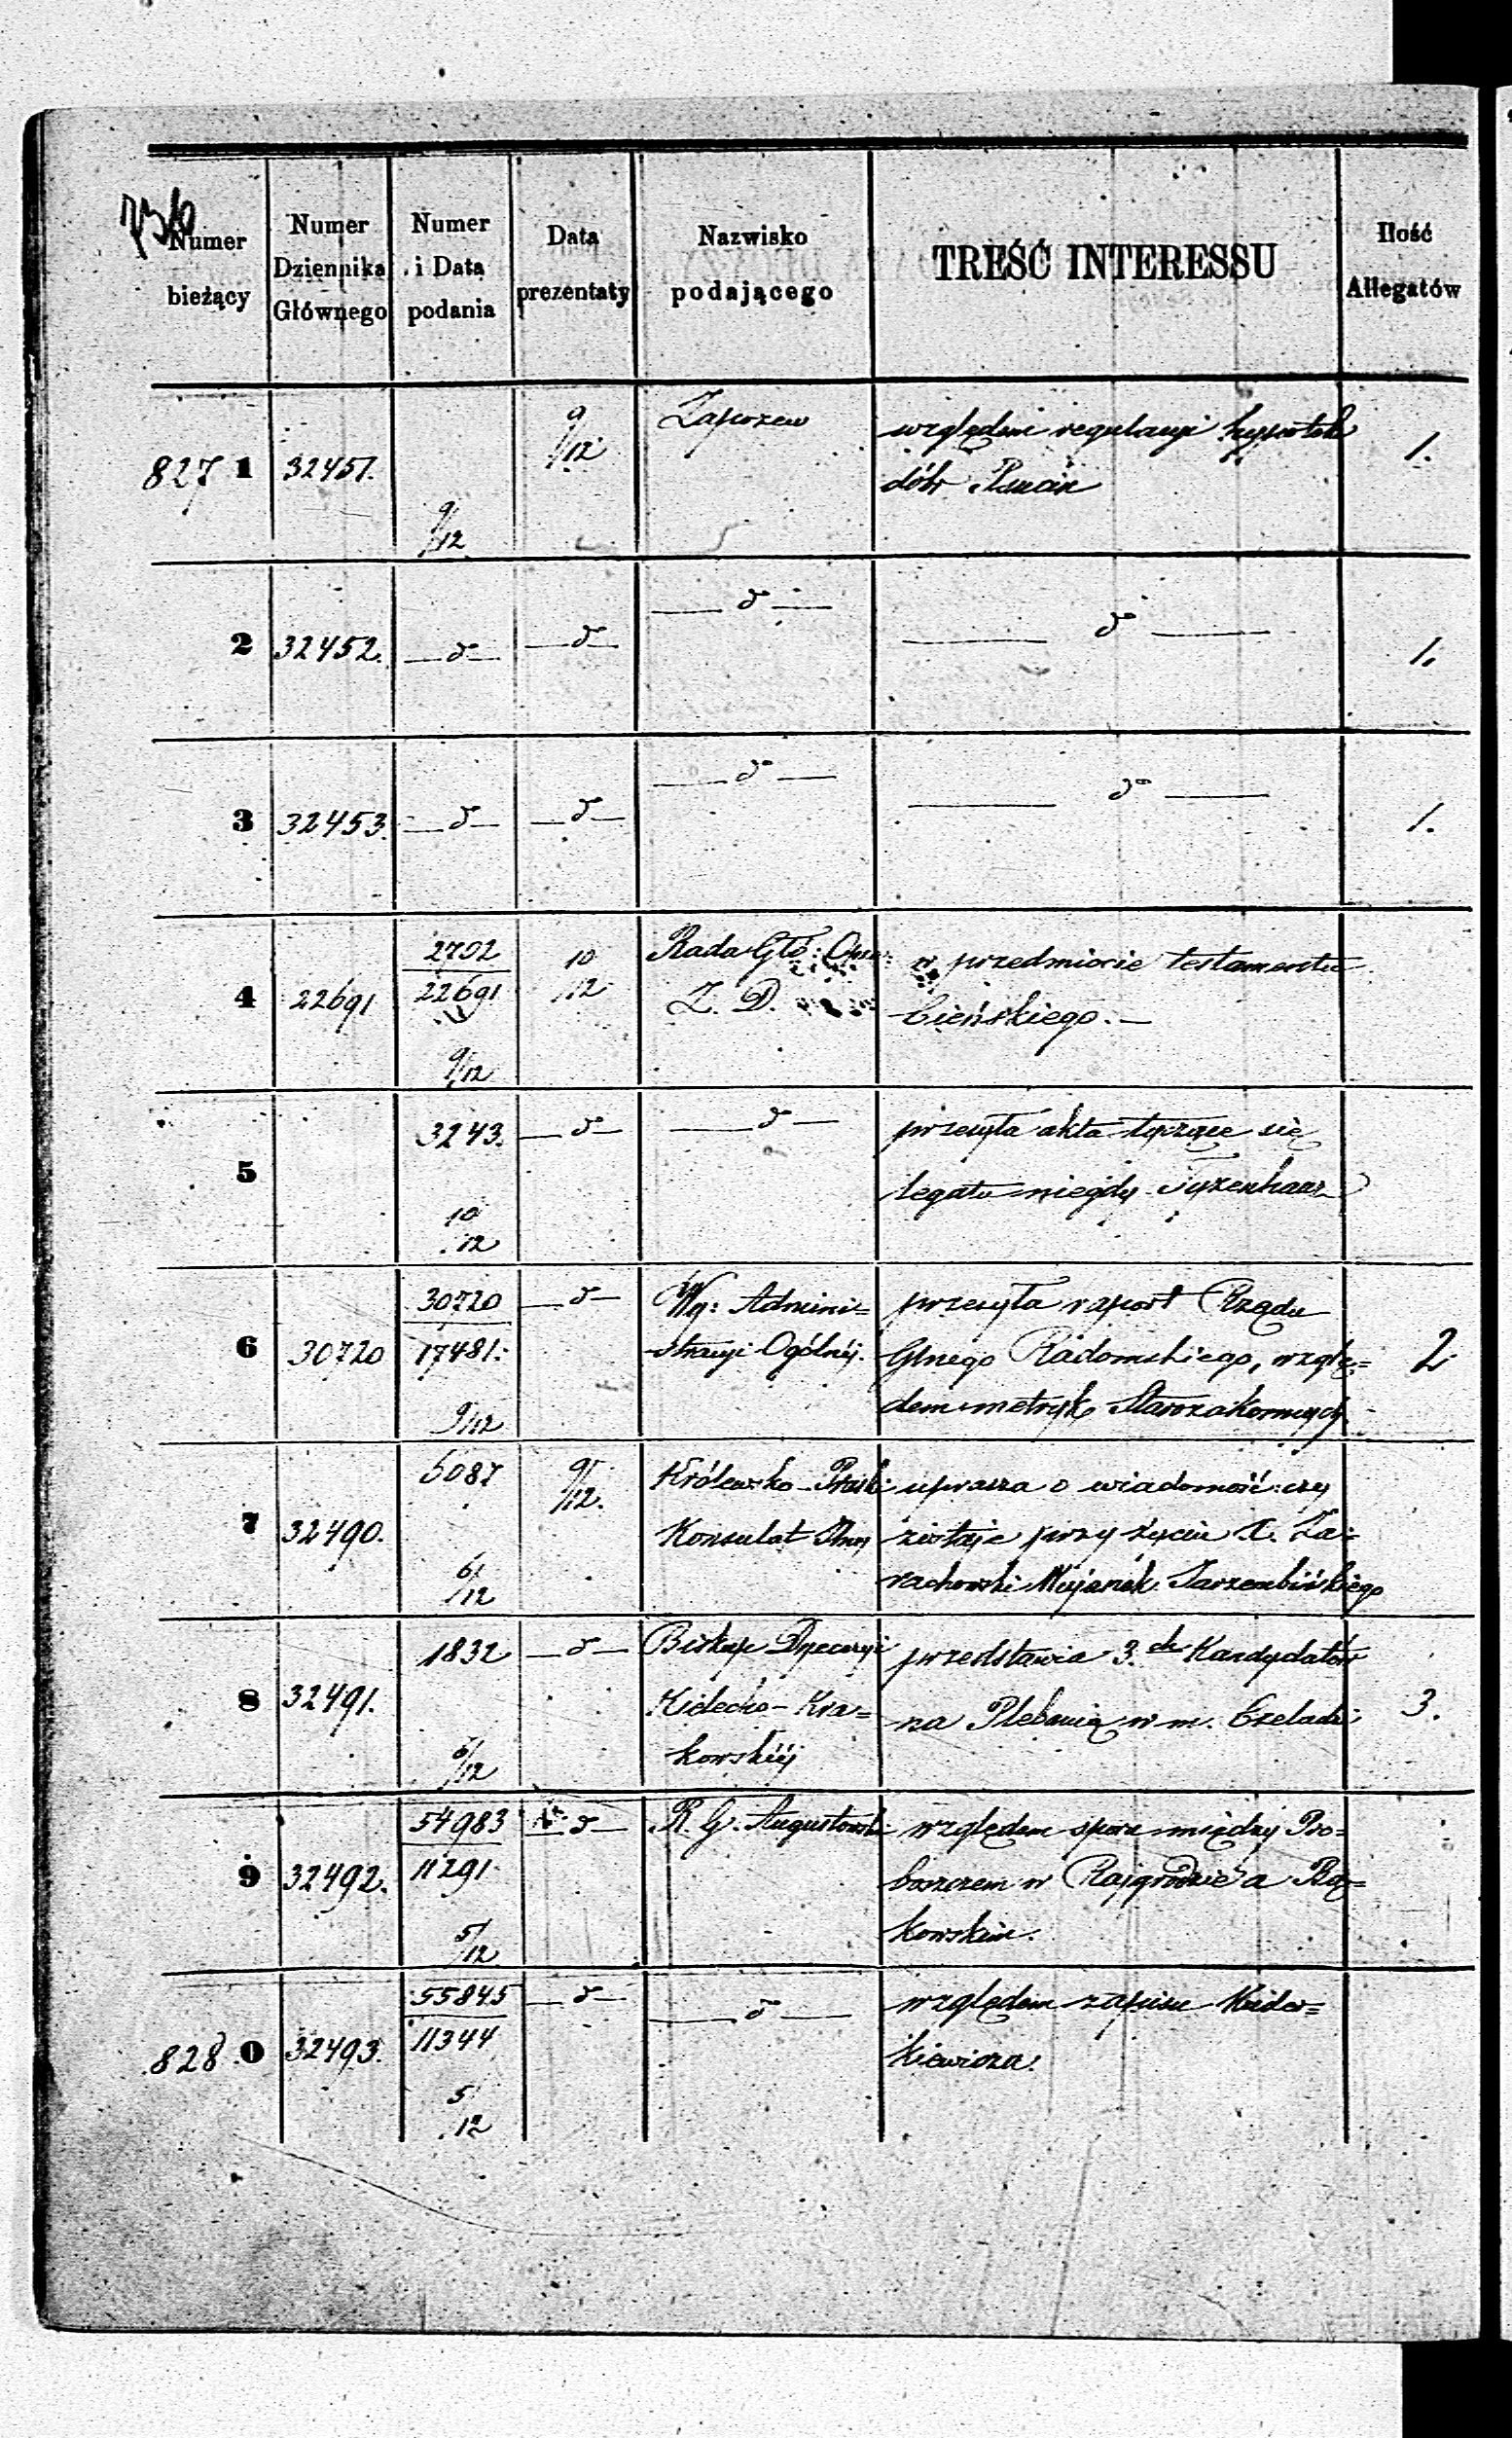 736
Numer bieżący
Numer Dziennika Głównego
Numer i Data podania
Data prezentaty
Nazwisko podającego
TREŚĆ INTERESSU
Ilość Allegatów
827 1
32451.
9/12
9/12
względem regulacyi hypotek
dóbr
1.
2
32452.
— d° —
— d° —
— d° —
— d° —
1.
3
32453.
— d° —
— d° —
— d° —
— d° —
1.
4
22691
2702
22691
9/12
10
12
Rada Głó: Opie:
Z. D.
w przedmiocie testamentu
Cieńskiego. —
5
3243.
10
12
— d° —
— d° —
przesyła akta tyczące się
legatu niegdy Tyzenhauz
6
30720
30720
17481.
9/12
— d° —
Wy: Admini=
stracyi Ogólnéj.
przesyła raport Rządu
Gbnego Radomskiego, wzglę=
dem metryk Starozakonnych.
2
7
32490.
6087
6/12
9/12.
Królewsko-Pruski
Konsulat
uprasza o wiadomość czy
zostaje przy życiu X.
8
32491.
1832
5/12
— d° —
Biskup Dyecezyi
Kielecko-Kra=
kowskiéj
przedstawia 3.ch Kandydatów
na Plebanią w m. Czeladzi
3.
9
32492.
54983
11291
5/12
— d° —
R. G. Augustowski
względem sporu między Pro=
boszczem w Rajgrodzie a
kowskim.
828 0
32493.
55845
11344
5
12
— d° —
— d° —
względem zapisu
kiewicza.